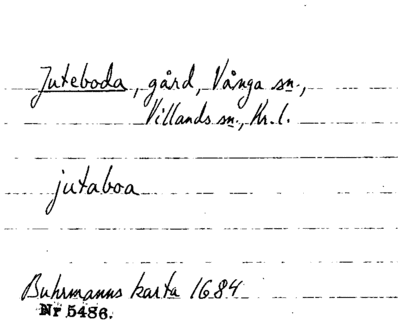 Juteboda, gård, Vånga sn.,
Villands sn., Kr. l.
jutaboa
Buhrmanns karta 1684
Nr 5486.